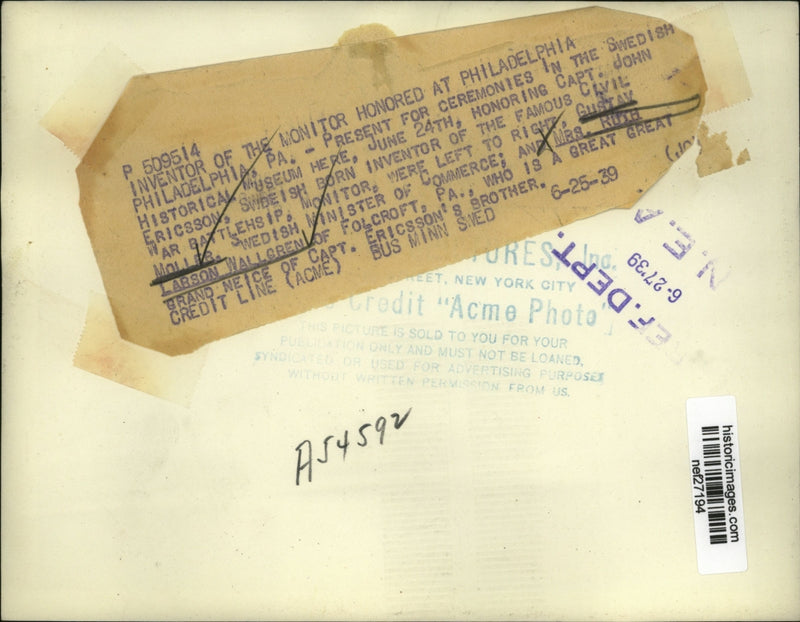 P 509514
INVENTOR OF THE MONITOR HONORED AT PHILADELPHIA
PHILADELPHIA, PA. - PRESENT FOR CEREMONIES IN THE SWEDISH
HISTORICAL MUSEUM HERE, JUNE 24TH, HONORING CAPT. JOHN
ERICSSON, SWDEISH BORN INVENTOR OF THE FAMOUS CIVIL
WAR BATTLEHSIP, MONITOR, WERE LEFT TO RIGHT, GUSTAV
MOLLER, SWEDISH MINISTER OF COMMERCE; AND MRS. RUTH
LARSON WALLGREN OF FOLCROFT, PA., WHO IS A GREAT GREAT
GRAND NEICE OF CAPT. ERICSSON'S BROTHER. (JO
CREDIT LINE (ACME) BUS MINN SWED 6-25-39
URES, Inc.
REET, NEW YORK CITY
Credit "Acme Photo"
THIS PICTURE IS SOLD TO YOU FOR YOUR
PUBLICATION ONLY AND MUST NOT BE LOANED,
SYNDICATED OR USED FOR ADVERTISING PURPOSES
WITHOUT WRITTEN PERMISSION FROM US.
REF. DEPT.
6-27'39
N. E. A
A54592
historicimages.com
nef27194